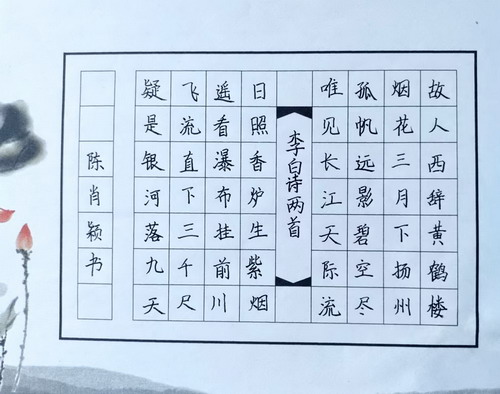 故人西辞黄鹤楼
烟花三月下扬州
孤帆远影碧空尽
唯见长江天际流
李白诗两首
日照香炉生紫烟
遥看瀑布挂前川
飞流直下三千尺
疑是银河落九天
陈肖颖书